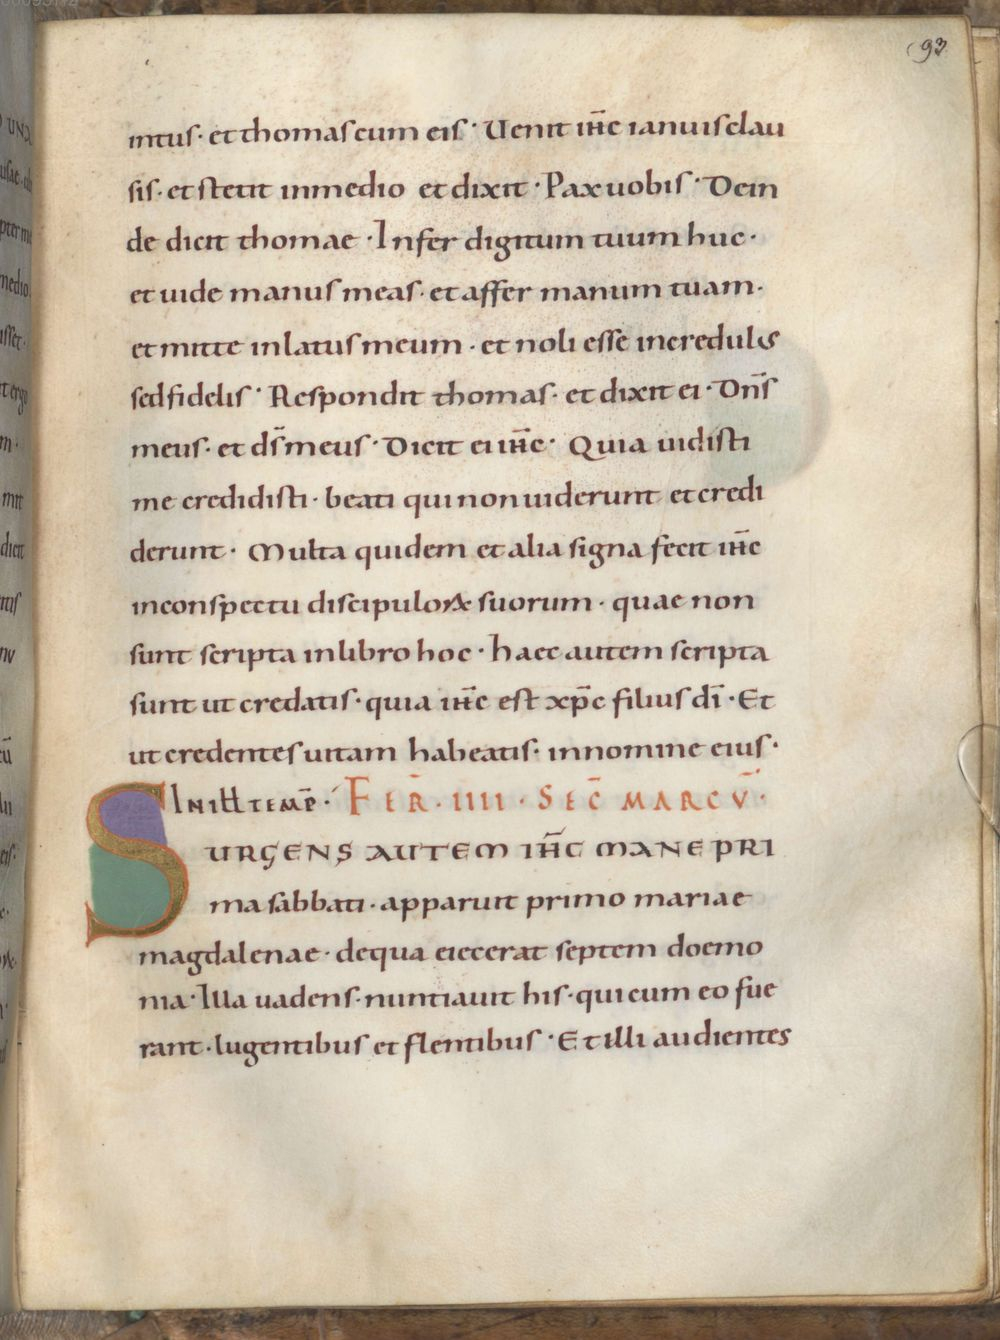 93
intus· et thomas cum eis· Uenit ih̅c ianuis clau
sis· et stetit in medio et dixit· Pax uobis· Dein
de dicit thomae· Infer digitum tuum huc·
et uide manus meas· et affer manum tuam·
et mitte in latus meum· et noli esse incredulis
sed fidelis· Respondit thomas· et dixit ei· Dn̅s
meus· et ds̅ meus· Dicit ei ih̅c· Quia uidisti
me credidisti· beati qui non uiderunt et credi
derunt· Multa quidem et alia signa fecit ih̅c
in conspectu discipuloꝝ suorum· quae non
sunt scripta in libro hoc· haec autem scripta
sunt ut credatis· quia ih̅c est xp̅c filius di̅· Et
ut credentes uitam habeatis· in nomine eius·
IN ILL TEMP̅· FER̅· IIII· SEC̅ MARCV̅·
SURGENS AUTEM IH̅C MANE PRI
ma sabbati· apparuit primo mariae
magdalenae· de qua eiecerat septem doemo
nia· Illa uadens· nuntiauit his· qui cum eo fue
rant· lugentibus et flentibus· Et illi audientes